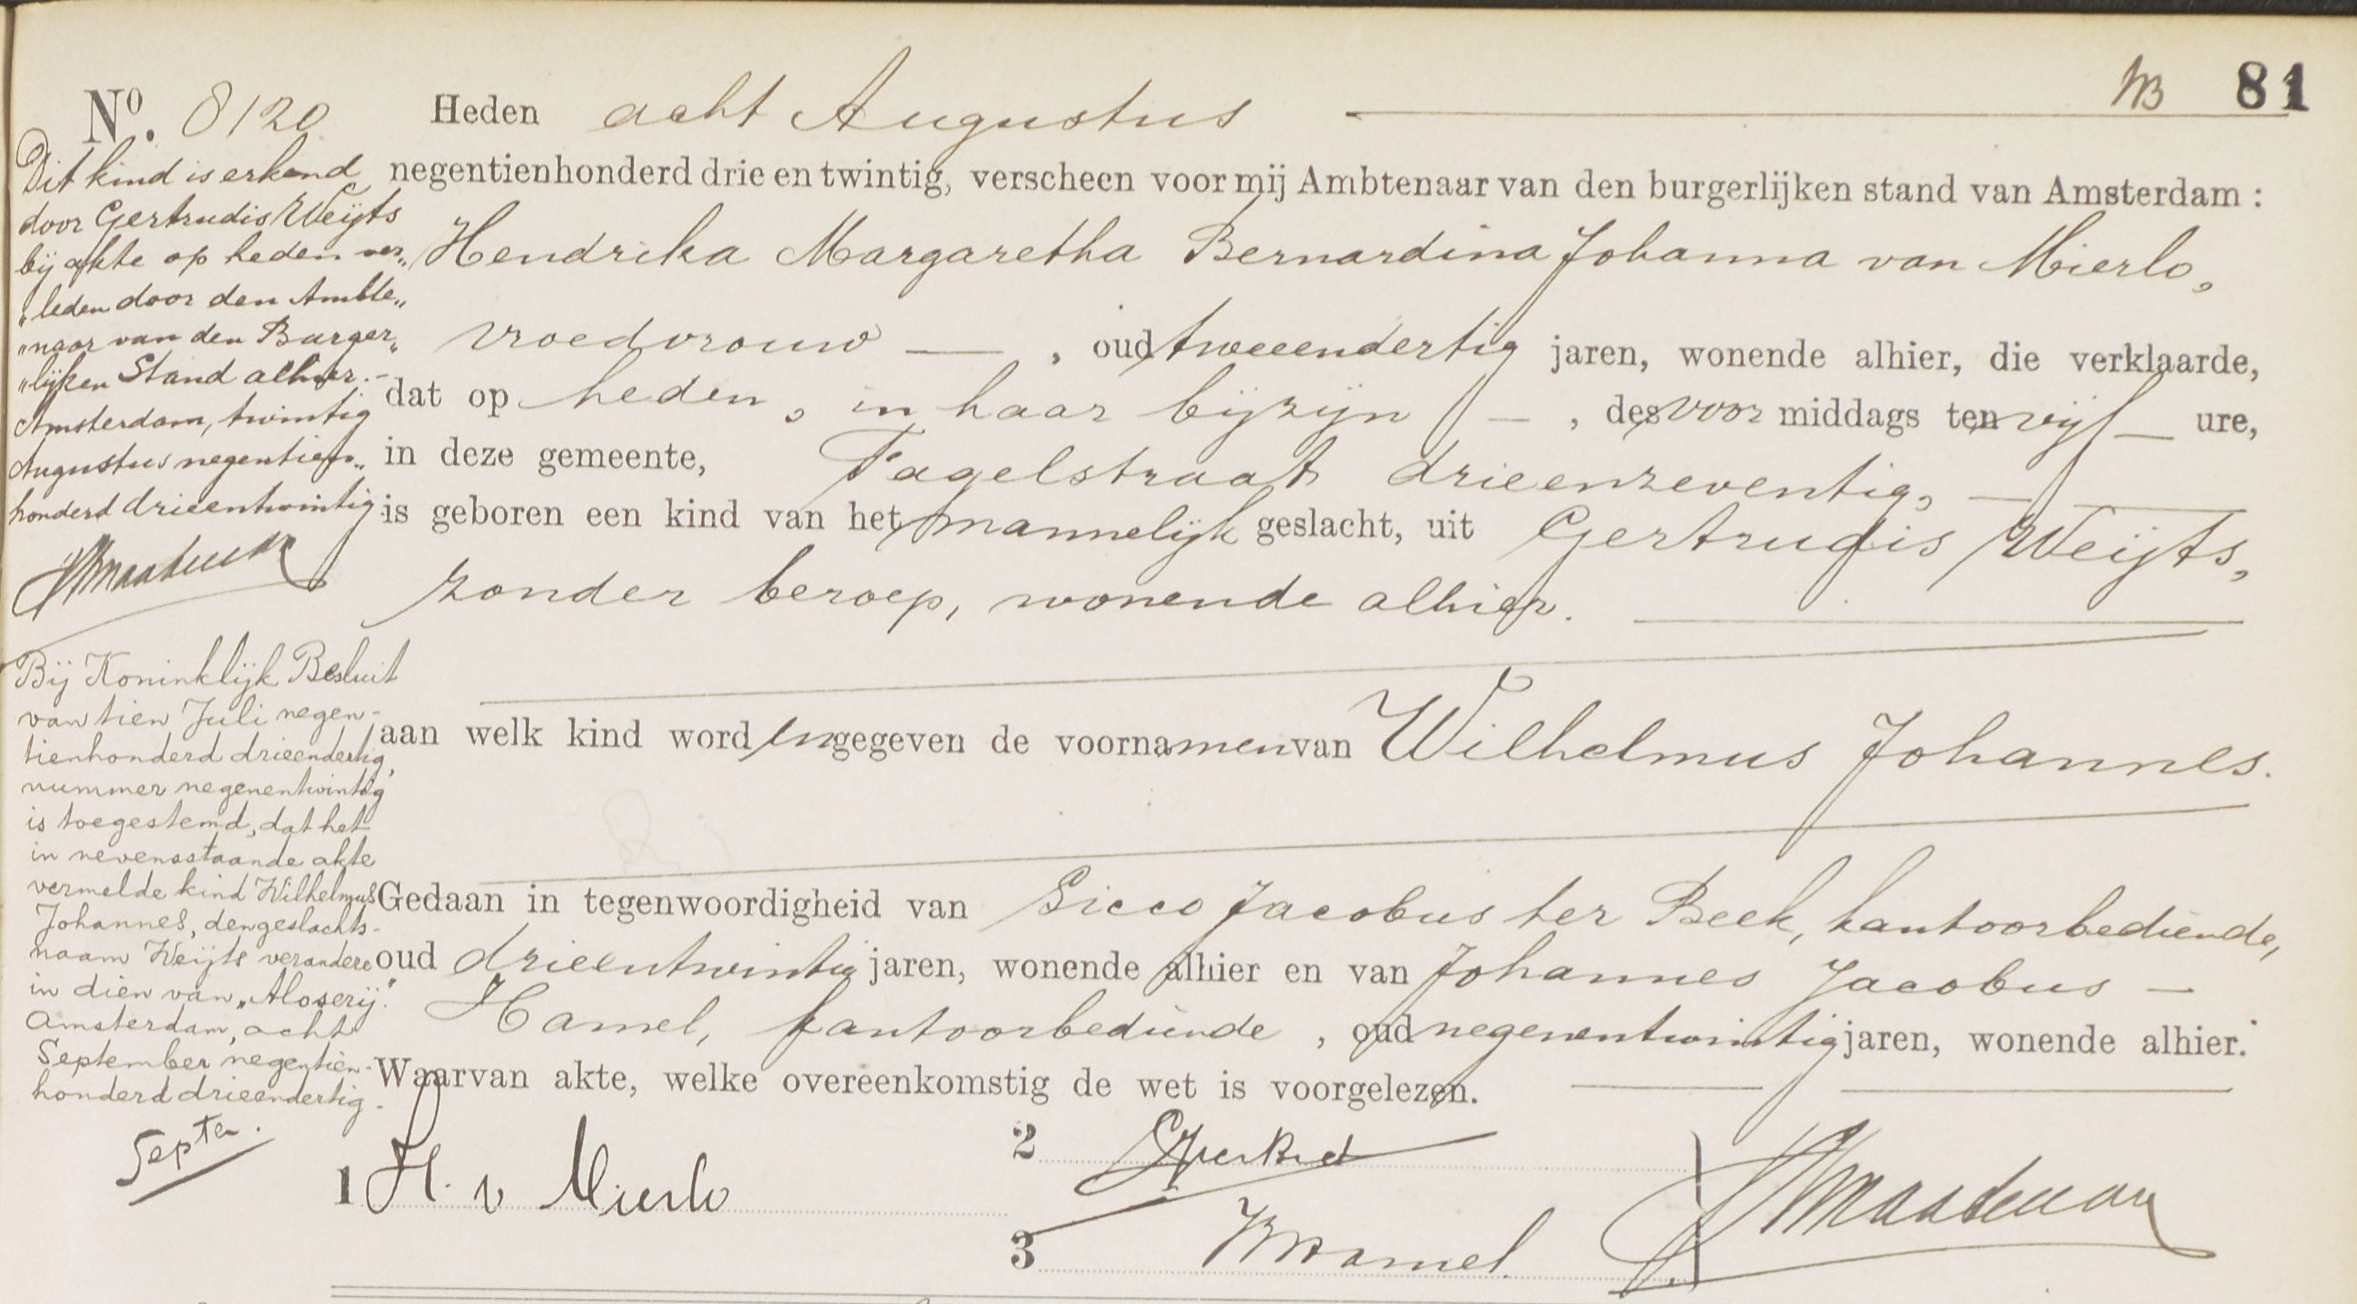 81
No. 8120 Heden acht Augustus
negentienhonderd drie en twintig, verscheen voor mij Ambtenaar van den burgerlijken stand van Amsterdam :
Hendrika Margaretha Bernardina Johanna van Mierlo,
vroedvrouw — , oud tweeendertig jaren, wonende alhier, die verklaarde,
dat op heden, in haar bijzijn — , des voor middags ten vijf — ure,
in deze gemeente, Fagelstraat drieenzeventig, —
is geboren een kind van het mannelijk geslacht, uit Gertrudis Weijts,
zonder beroep, wonende alhier.
aan welk kind worden gegeven de voornamen van Wilhelmus Johannes.
Gedaan in tegenwoordigheid van Sicco Jacobus ter Beek, kantoorbediende,
oud drieentwintig jaren, wonende alhier en van Johannes Jacobus —
Hamel, kantoorbediende , oud negenentwintig jaren, wonende alhier.
Waarvan akte, welke overeenkomstig de wet is voorgelezen.
Dit kind is erkend
door Gertrudis Weijts
bij akte op heden ver„
„leden door den Ambte„
„naar van den Burger„
„lijken Stand alhier.-
Amsterdam, twintig
Augustus negentien„
honderd drieentwintig.
Bij Koninklijk Besluit
van tien Juli negen-
tienhonderd drieendertig,
nummer negenentwintig
is toegestemd, dat het
in nevensstaande akte
vermelde kind Wilhelmus
Johannes, den geslachts-
naam Weijts verandere
in dien van „Aloserij."
Amsterdam, acht
September negentien-
honderd drieendertig.
1 H. v Mierlo
2
3 Hamel